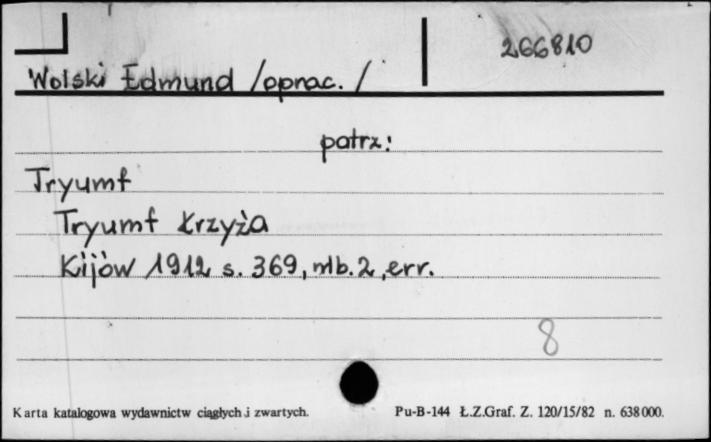 266810
Wolski Edmund /oprac./
patrz:
Tryumf
Tryumf Krzyża
Kijów 1912 s. 369, nlb. 2, err.
8
Karta katalogowa wydawnictw ciągłych i zwartych. Pu-B-144 Ł.Z.Graf. Z. 120/15/82 n. 638 000.